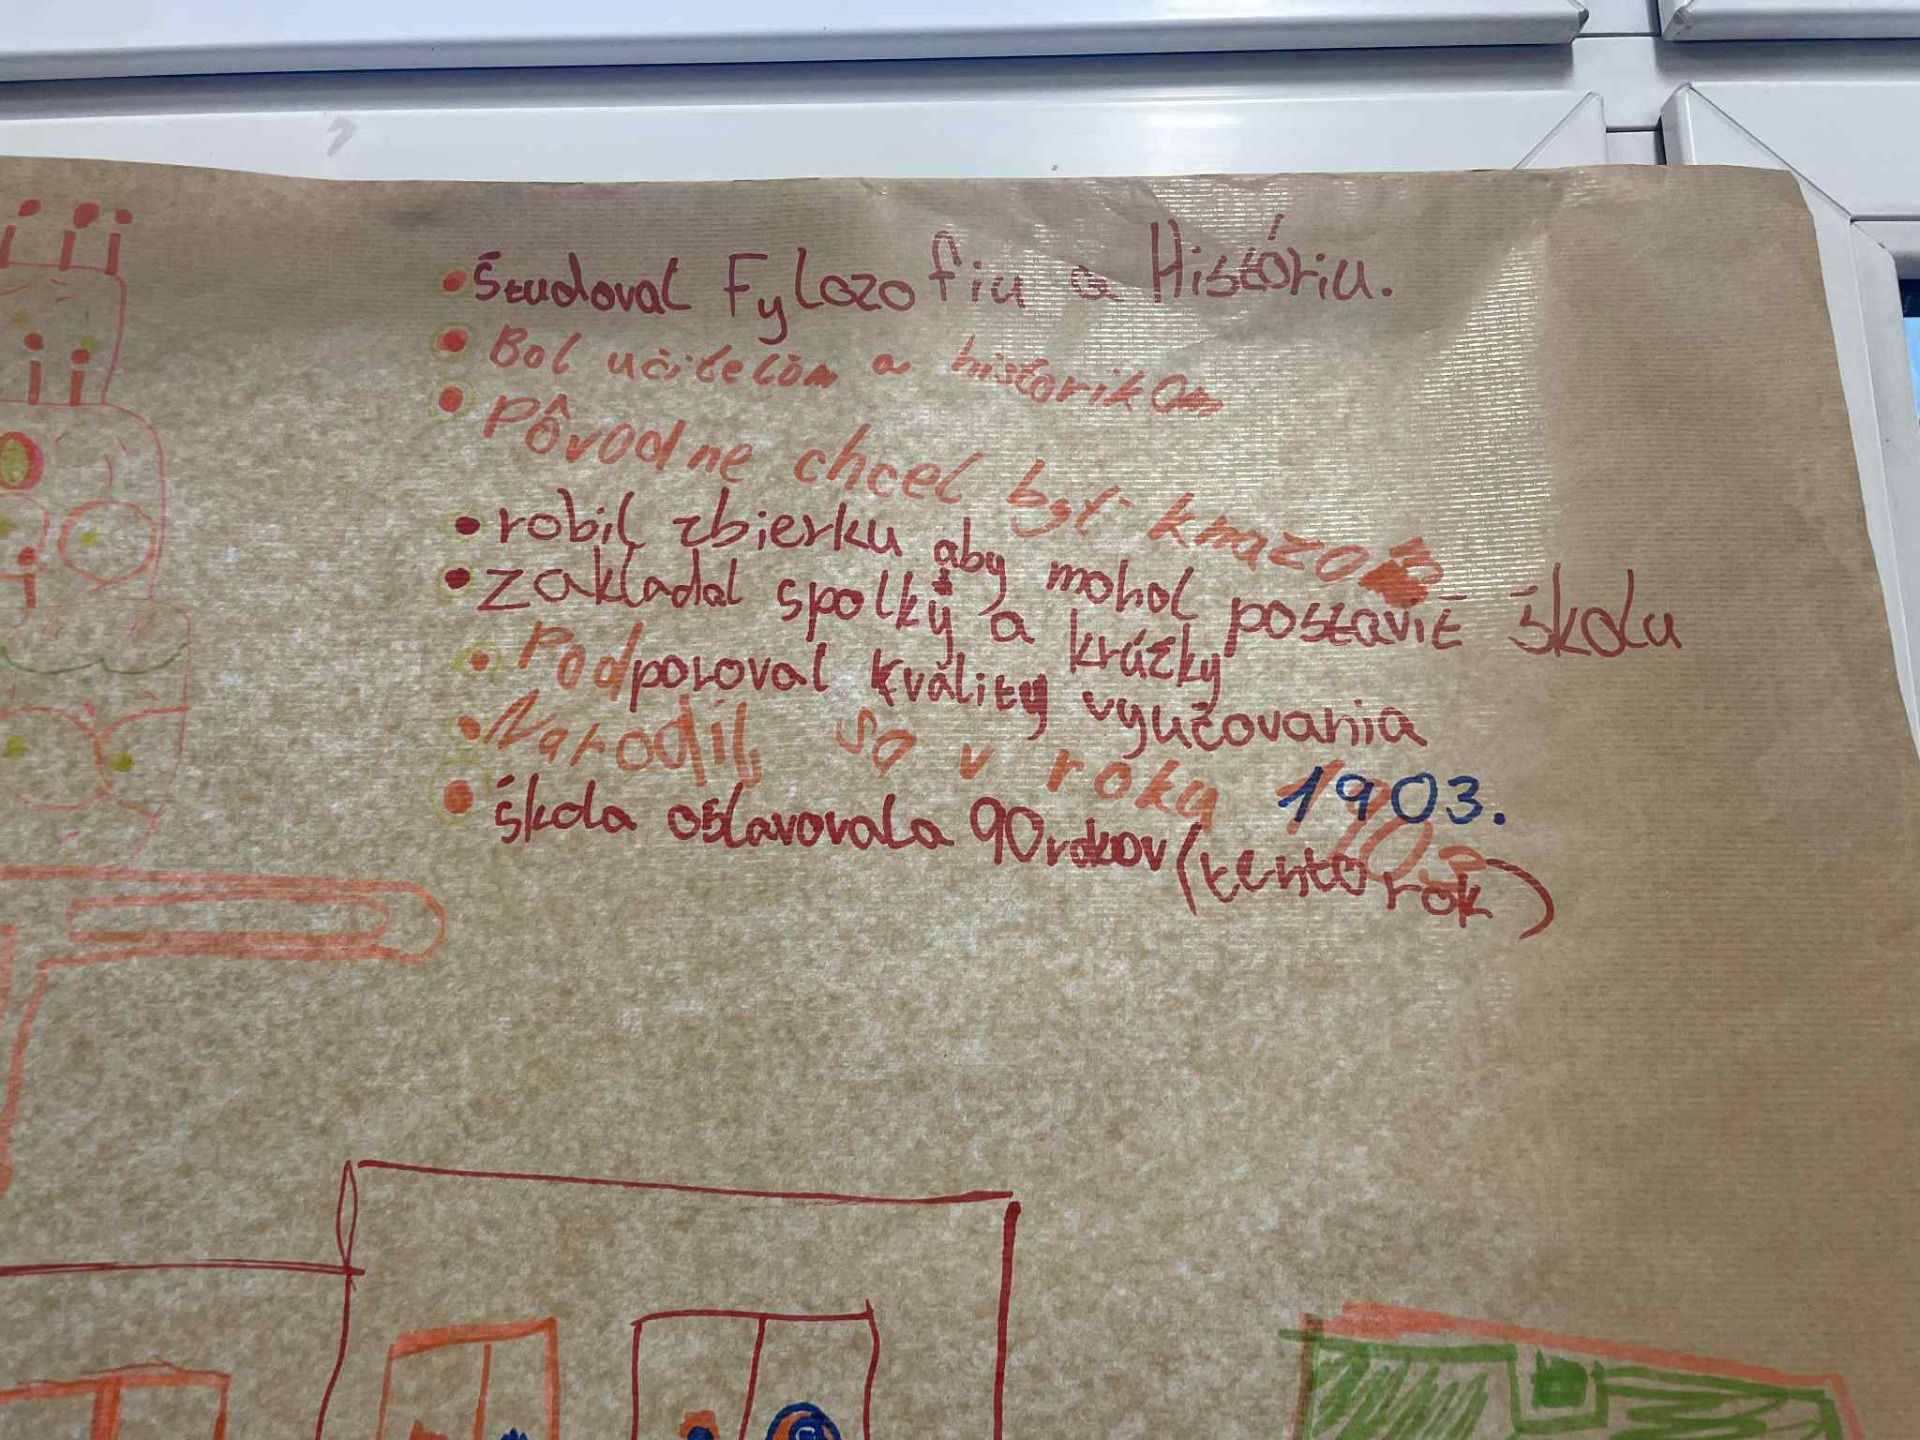 • študoval Fylozofiu a Históriu.
• Bol učitelom a historikom
• Pôvodne chcel byť kňazom
• robil zbierku aby mohol postaviť školu
• zakladal spolky a krúžky
• Podporoval kvality vyučovania
• Narodil sa v roku 1903.
• škola oslavovala 90 rokov (tento rok)